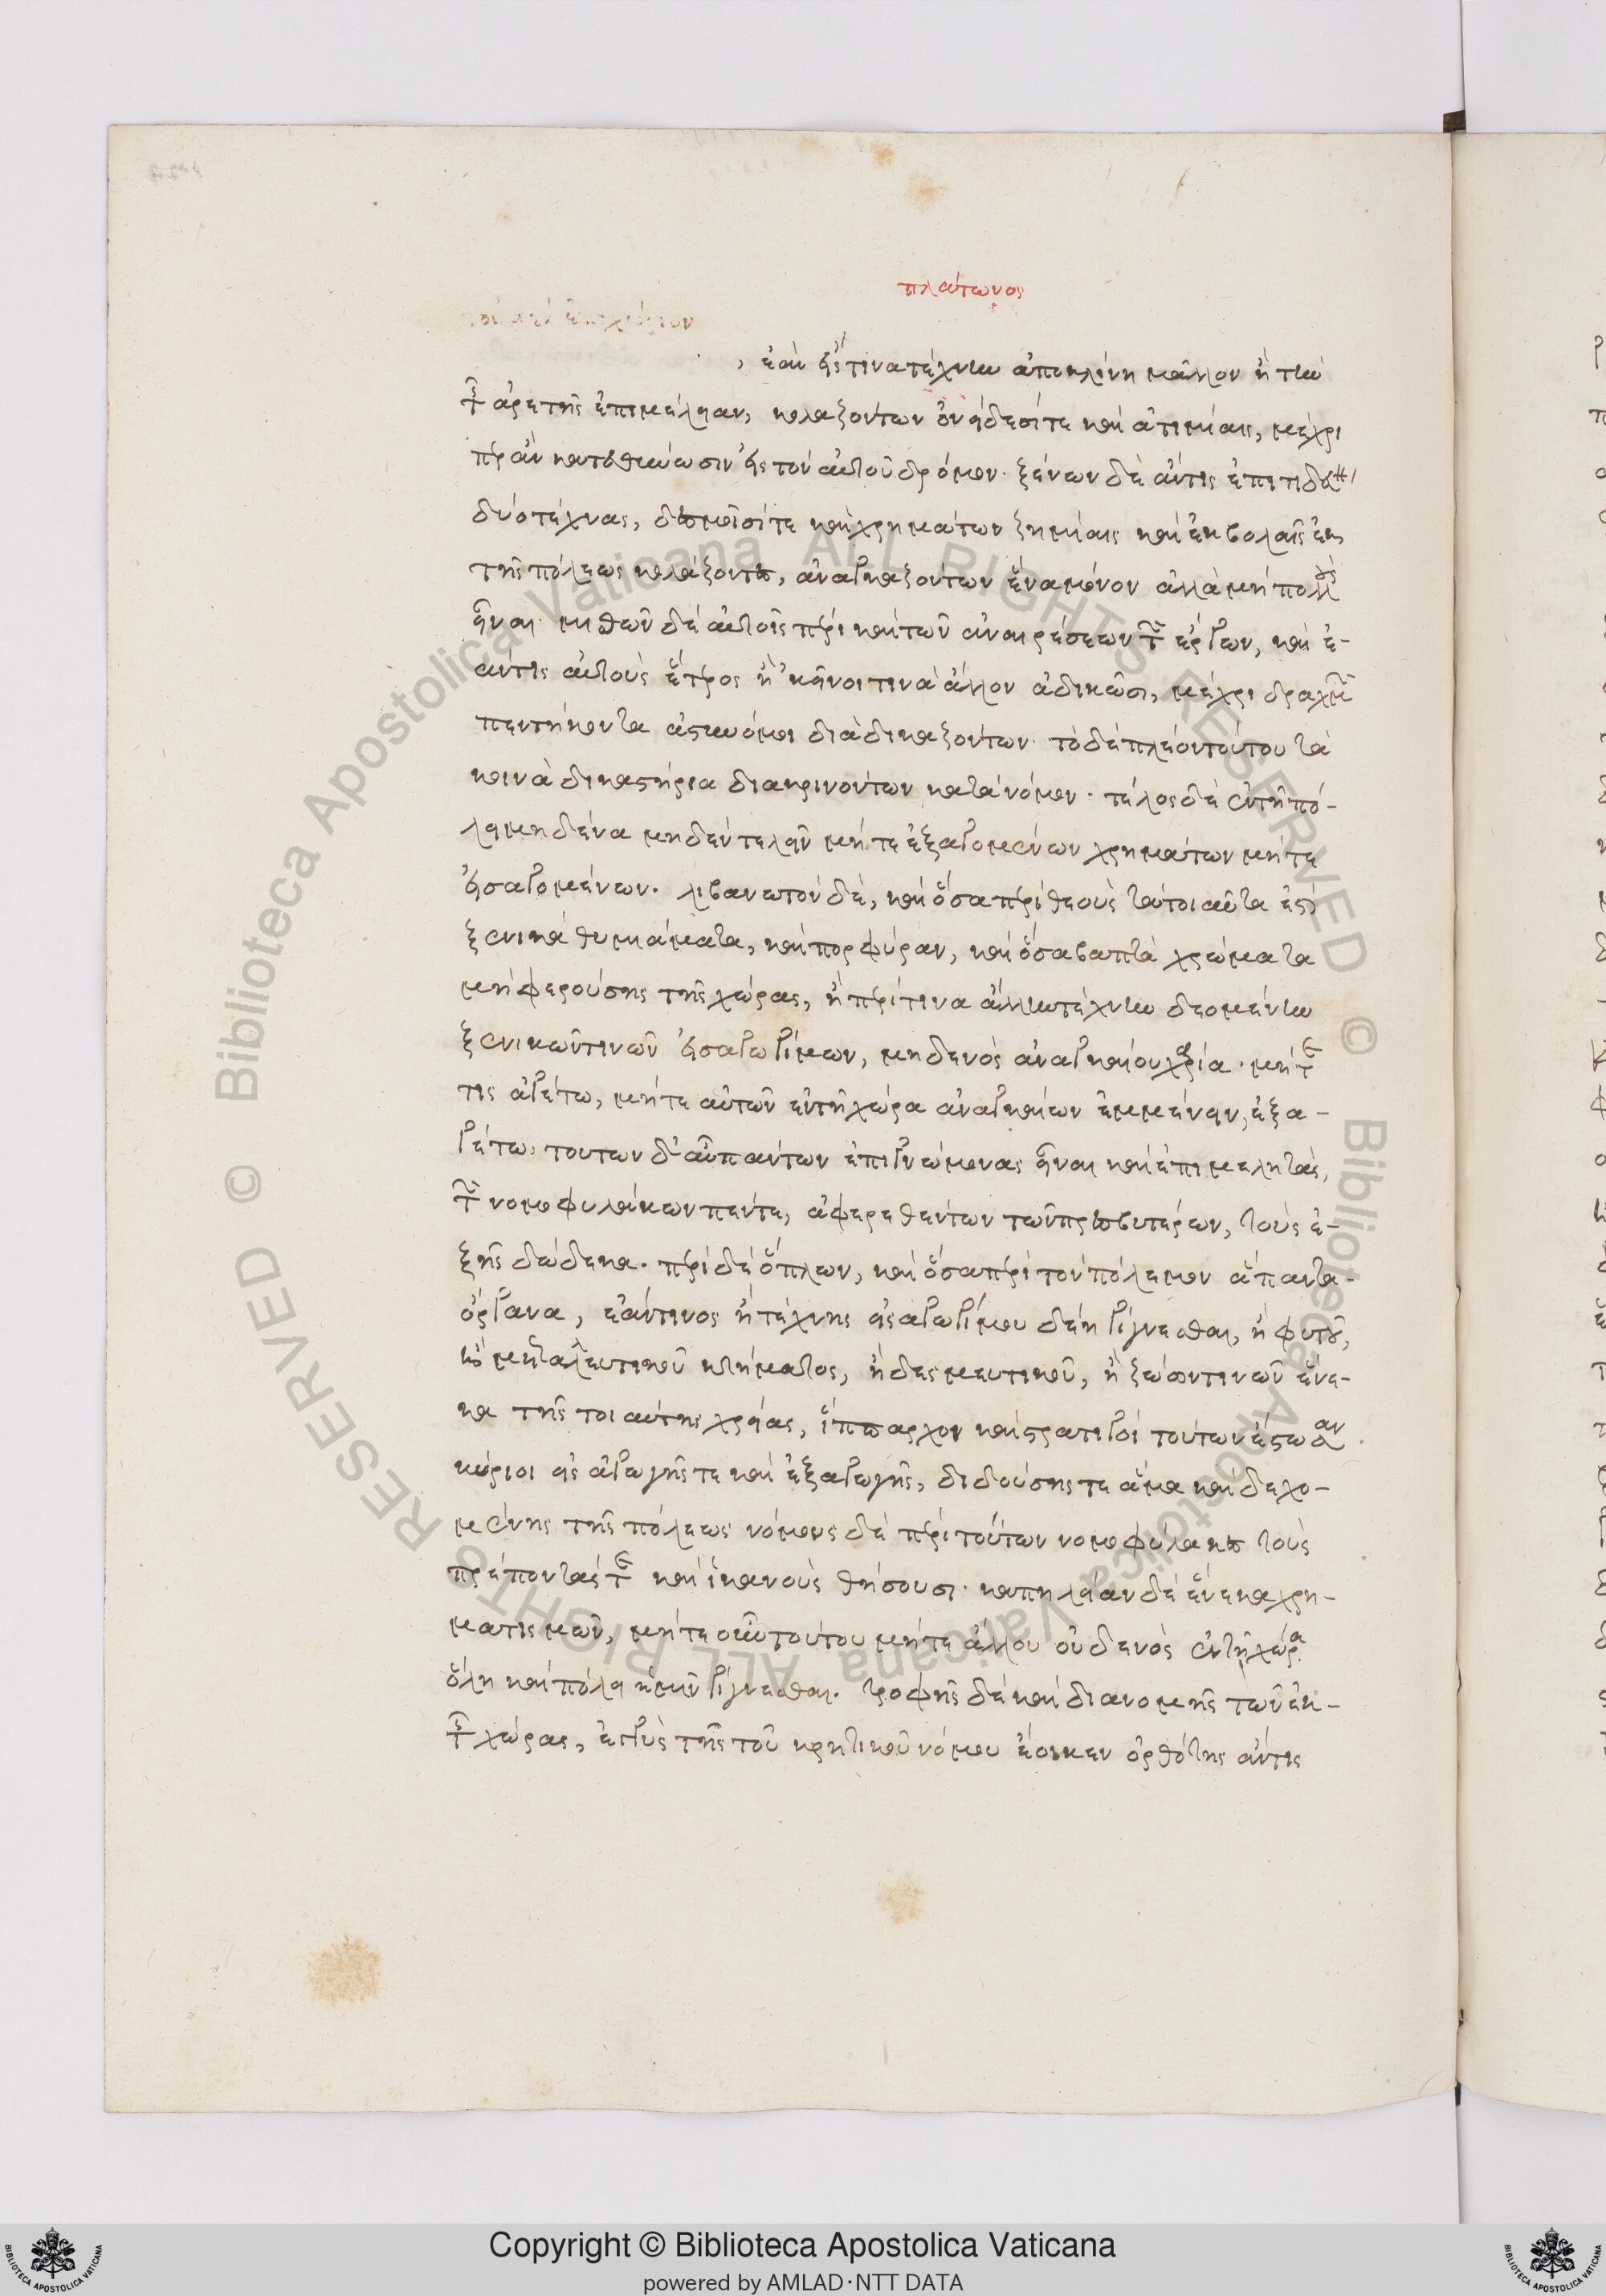 πλάτωνος
, ἐὰν εἴς τινα τέχνην ἀποκλίνη μᾶλλον ἢ τὴν
τῆς ἀρετῆς ἐπιμέλειαν, κολαζόντων ὀνείδεσί τε καὶ ἀτιμίαις, μέχρι
περ ἂν κατευθύνωσιν εἰς τὸν αὐτοῦ δρόμον. ξένων δὲ ἄν τις ἐπιτηδεύη
δύο τέχνας, δεσμοῖσί τε καὶ χρημάτων ζημίαις καὶ ἐκβολαῖς ἐκ
τῆς πόλεως κολάζοντες, ἀναγκαζόντων ἕνα μόνον ἀλλὰ μὴ πολλοὺς
εἶναι. μισθῶν δὲ αὐτοῖς πέρι καὶ τῶν ἀναιρέσεων τῶν ἔργων, καὶ ἐ-
άν τις αὐτοὺς ἕτερος ἢ κεῖνοί τινα ἄλλον ἀδικῶσι, μέχρι δραχμῶν
πεντήκοντα ἀστυνόμοι διαδικαζόντων. τὸ δὲ πλέον τούτου τὰ
κοινὰ δικαστήρια διακρινόντων κατὰ νόμον. τέλος δὲ ἐν τῆ πό-
λει μηδένα μηδὲν τελεῖν μήτε ἐξαγομένων χρημάτων μήτε
εἰσαγομένων. λιβανωτὸν δὲ, καὶ ὅσα πρὶ θεοὺς τὰ τοιαῦτα ἐστὶ
ξενικὰ θυμιάματα, καὶ πορφύραν, καὶ ὅσα βαπτὰ χρώματα
μὴ φερούσης τῆς χώρας, ἢ περί τινα ἄλλην τέχνην δεομένην
ξενικῶν τινῶν εἰσαγωγίμων, μηδενὸς ἀναγκαίου χάρια. μήτε
τις ἀγέτω, μήτε αὖ τῶν ἐν τῆ χώρα ἀναγκαίων ἐμμένειν, ἐξα-
γέτω. τούτων δ' αὖ πάντων ἐπιγνώμονας εἶναι καὶ ἐπιμελητὰς,
τῶν νομοφυλάκων πέντε, ἀφερεθέντων τῶν πρεσβυτέρων, τοὺς ἑ-
ξῆς δώδεκα. περὶ δὲ ὅπλων, καὶ ὅσα περὶ τὸν πόλεμον ἅπαντα
ὄργανα, ἐάν τινος ἢ τέχνης εἰσαγωγίμου δέη γίγνεσθαι, ἢ φυτοῦ,
ἢ μεταλλευτικοῦ κτήματος, ἢ δεσμευτικοῦ, ἢ ζώων τινῶν ἕνε-
κα τῆς τοιαύτης χρείας, ἵππαρχοι καὶ στρατηγοὶ τούτων ἔστωσαν
κύριοι εἰσαγωγῆς τε καὶ ἐξαγωγῆς, διδούσης τε ἅμα καὶ δεχο-
μένης τῆς πόλεως νόμους δὲ περὶ τούτων νομοφύλακες τοὺς
πρέποντάς τε καὶ ἱκανοὺς θήσουσι. καπηλείαν δὲ ἕνεκα χρη-
ματισμῶν, μήτε οὖν τούτου μήτε ἄλλου οὐδενὸς ἐν τῆ χώρα
ὅλη καὶ πόλει ἡμῖν γίγνεσθαι. τροφῆς δὲ καὶ διανομῆς τῶν ἐκ
τῆς χώρας, ἐγγὺς τῆς τοῦ κρητικοῦ νόμου ἔοικεν ὀρθότης ἄν τις
Copyright © Biblioteca Apostolica Vaticana
powered by AMLAD·NTT DATA